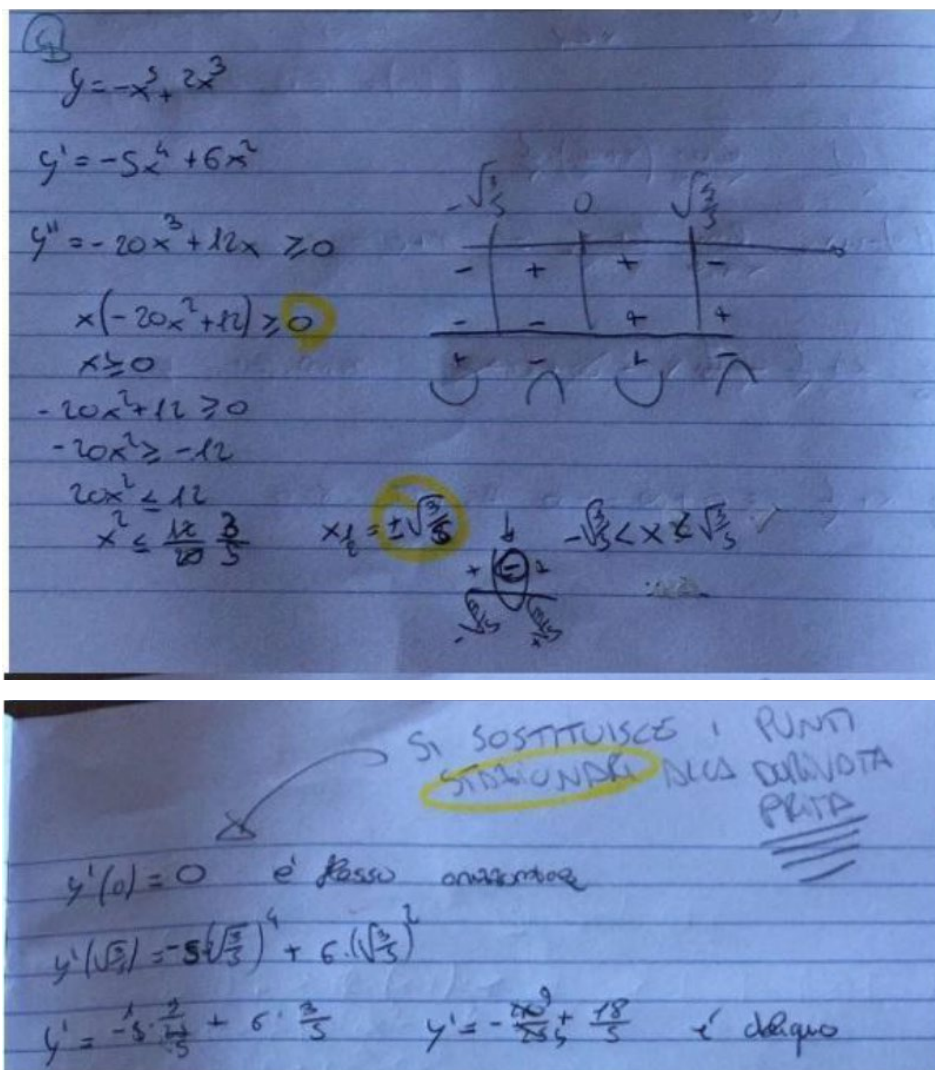 y = -x⁵ + 2x³
y' = -5x⁴ + 6x²
y'' = -20x³ + 12x ≥ 0
x(-20x² + 12) ≥ 0
x ≥ 0
-20x² + 12 ≥ 0
-20x² ≥ -12
20x² ≤ 12
x² ≤ 12/20 3/5
x½ = ±√3/5
-√3/5 < x < √3/5
+ - +
-√3/5 0 √3/5
- + + -
- - + +
+ - + -
SI SOSTITUISCE I PUNTI
STAZIONARI ALLA DERIVATA
PRITA
y'(0) = 0 è flesso orizzontale
y'(√3/5) = -5(√3/5)⁴ + 6·(√3/5)²
y' = + 6 · 3/5 y' = + 18/5 è obliquo